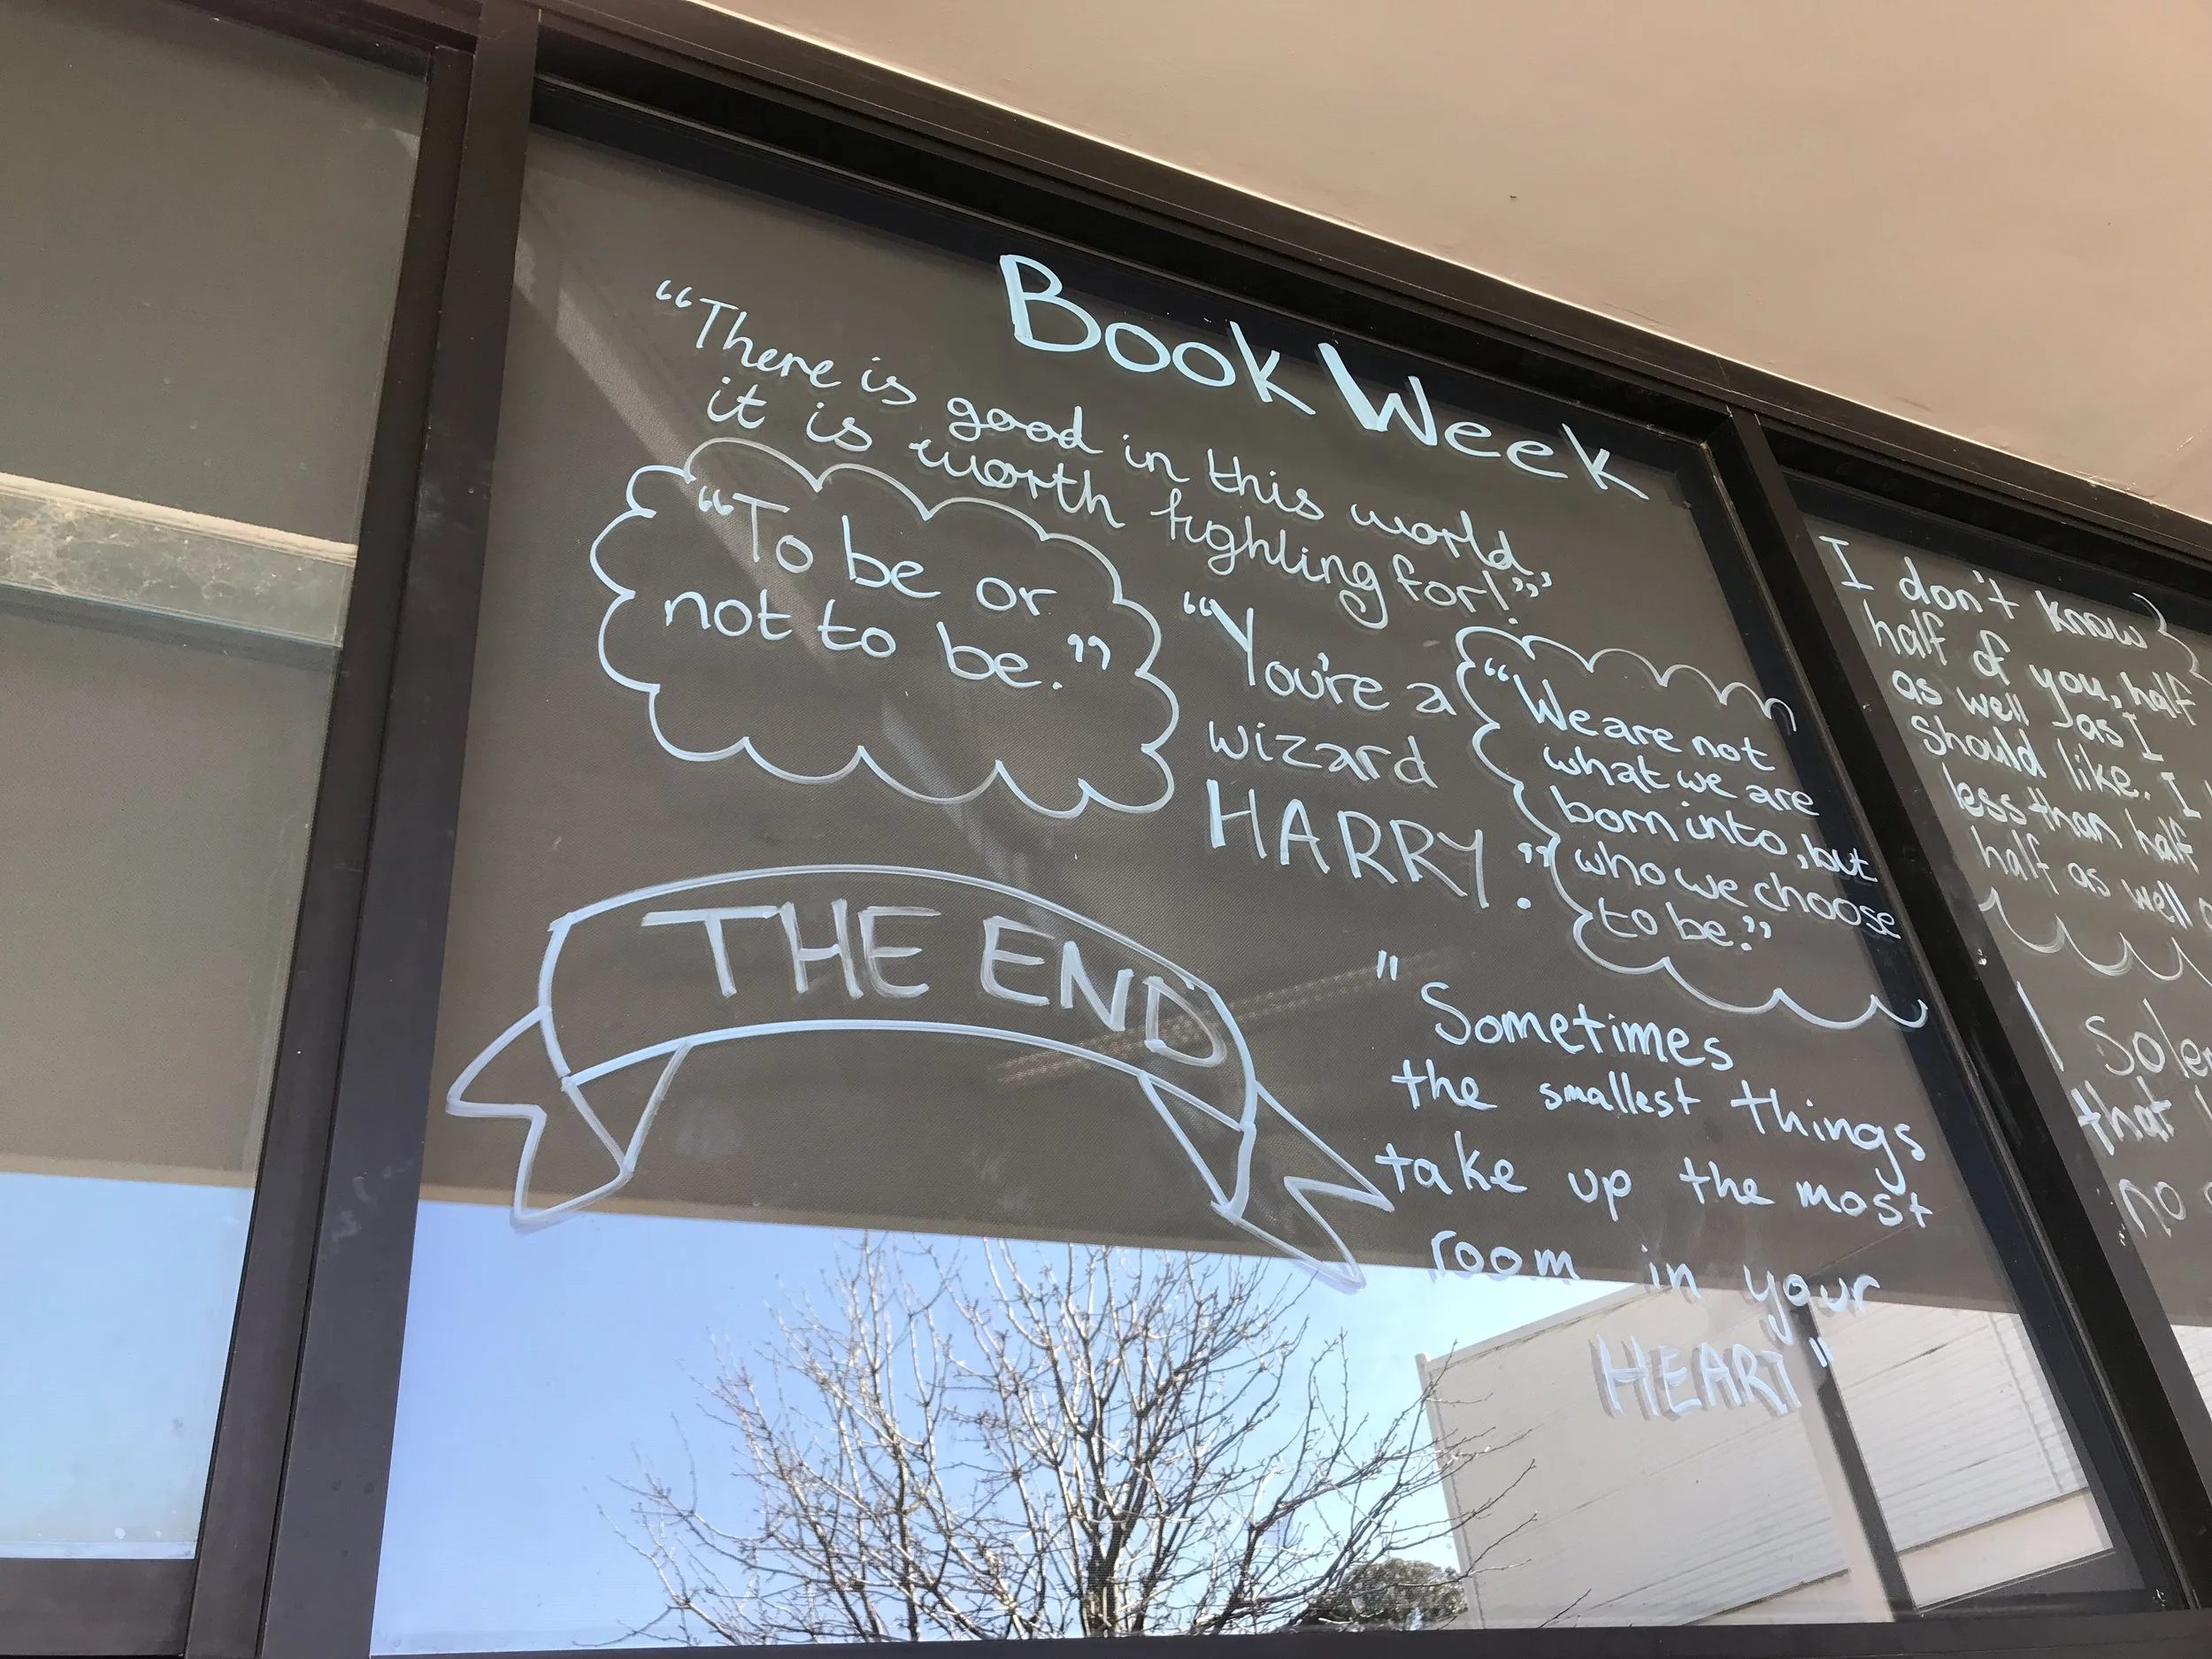 Book Week
“There is good in this world,
it is worth fighting for!”
“To be or
not to be.”
“You're a
wizard
HARRY.”
“We are not
what we are
born into, but
who we choose
to be.”
THE END
"Sometimes
the smallest things
take up the most
room in your
HEART"
I don't know
half of you, half
as well as I
should like. I
less than half
half as well
I
that
no